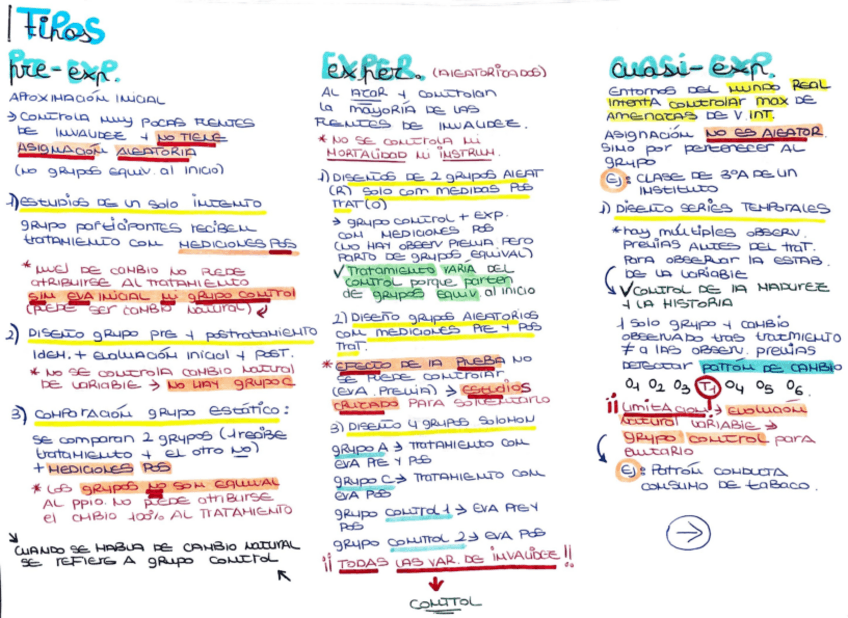 Tipos
pre-exp.
APROXIMACIÓN INICIAL
→ CONTROLA MUY POCAS FUENTES
DE INVALIDEZ + NO TIENE
ASIGNACIÓN ALEATORIA
(NO GRUPOS EQUIV. al INICIO)
1) ESTUDIOS DE UN SOLO INTENTO
GRUPO PARTICIPANTES RECIBEN
TRATAMIENTO CON MEDICIONES POS
* NIVEL DE CAMBIO NO PUEDE
ATRIBUIRSE AL TRATAMIENTO
SIN EVA INICIAL NI GRUPO CONTROL
(PUEDE SER CAMBIO NATURAL)
2) DISEÑO GRUPO PRE Y POSTRATAMIENTO
IDEM. + EVALUACIÓN INICIAL Y POST.
* NO SE CONTROLA CAMBIO NATURAL
DE VARIABLE → NO HAY GRUPO C
3) COMPARACIÓN GRUPO ESTÁTICO:
SE COMPARAN 2 GRUPOS (1 RECIBE
TRATAMIENTO Y EL OTRO NO)
+ MEDICIONES POS
* LOS GRUPOS NO SON EQUIVAL
AL PPIO. NO PUEDE ATRIBUIRSE
EL CMBIO 100% AL TRATAMIENTO
CUANDO SE HABLA DE CAMBIO NATURAL
SE REFIERE A GRUPO CONTROL
exper. (ALEATORIZADOS)
AL AZAR Y CONTROLAN
LA MAYORÍA DE LAS
FUENTES DE INVALIDEZ.
* NO SE CONTROLA NI
MORTALIDAD NI INSTRUM.
1) DISEÑOS DE 2 GRUPOS ALEAT
(R) SOLO CON MEDIDAS POS
TRAT (O)
→ GRUPO CONTROL + EXP.
CON MEDICIONES POS
(NO HAY OBSERV PREVIA, PERO
PARTO DE GRUPOS EQUIVAL)
✓ TRATAMIENTO VARÍA DEL
CONTROL PORQUE PARTEN
DE GRUPOS EQUIV. al INICIO
2) DISEÑO GRUPOS ALEATORIOS
CON MEDICIONES PRE Y POS
TRAT.
* EFECTO DE LA PRUEBA NO
SE PUEDE CONTROLAR
(EVA. PREVIA) → ESTUDIOS
CRUZADO PARA SOLVENTARLO
3) DISEÑO 4 GRUPOS SOLOMON
GRUPO A → TRATAMIENTO CON
EVA PRE Y POS
GRUPO C → TRATAMIENTO CON
EVA POS
GRUPO CONTROL 1 → EVA PRE Y
POS
GRUPO CONTROL 2 → EVA POS
¡¡ TODAS LAS VAR. DE INVALIDEZ !!
↓
CONTROL
cuasi-exp.
ENTORNOS DEL MUNDO REAL
INTENTA CONTROLAR MAX DE
AMENAZAS DE V. INT.
ASIGNACIÓN NO ES ALEATOR.
SINO POR PERTENECER AL
GRUPO
Ej: CLASE DE 3ºA DE UN
INSTITUTO
1) DISEÑO SERIES TEMPORALES
* HAY MÚLTIPLES OBSERV.
PREVIAS ANTES DEL TRAT.
PARA OBSERVAR LA ESTAB.
DE LA VARIABLE
✓ CONTROL DE LA MADUREZ
Y LA HISTORIA
1 SOLO GRUPO Y CAMBIO
OBSERVADO TRAS TRATMIENTO
≠ A LAS OBSERV. PREVIAS
DETECTAR PATRÓN DE CAMBIO
O1 O2 O3 T1 O4 O5 O6
¡¡ LIMITACIÓN → EVOLUCIÓN
NATURAL VARIABLE →
GRUPO CONTROL PARA
EVITARLO
Ej: PATRÓN CONDUCTA
CONSUMO DE TABACO.
→